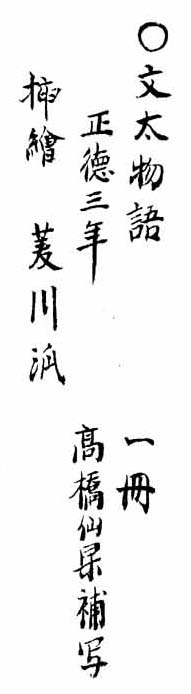 ○文太物語　一冊
正德三年　高橋仙果補写
挿繪　菱川派